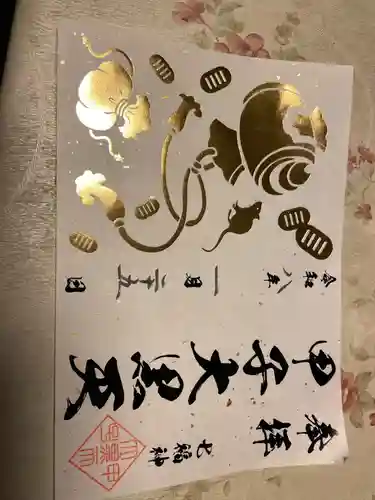 奉拝 七福神
甲子大黒天
令和八年 一月二十五日